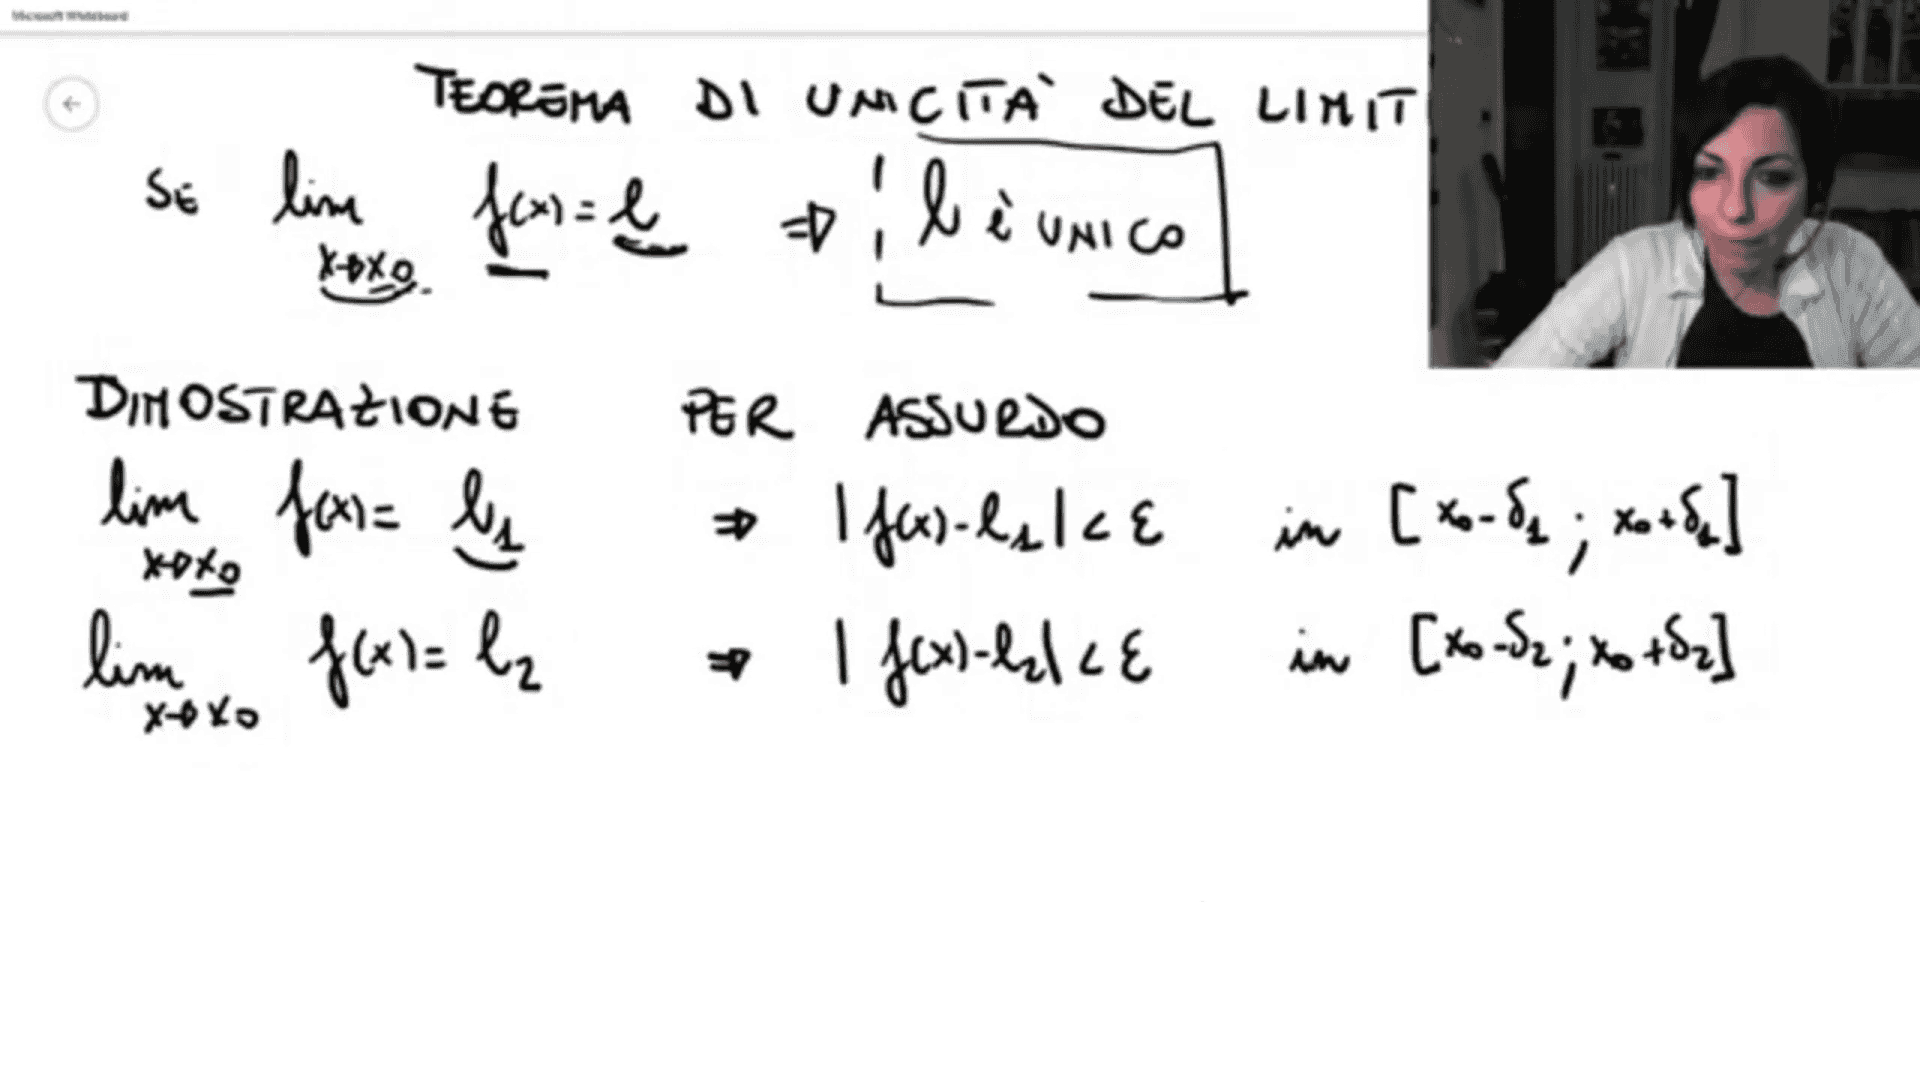 Microsoft Whiteboard
TEOREMA DI UNICITÀ DEL LIMIT
SE lim x→x₀ f(x) = l ⇒ l è UNICO
DIMOSTRAZIONE PER ASSURDO
lim x→x₀ f(x) = l₁ ⇒ |f(x) - l₁| < ε in [x₀ - δ₁ ; x₀ + δ₁]
lim x→x₀ f(x) = l₂ ⇒ |f(x) - l₂| < ε in [x₀ - δ₂ ; x₀ + δ₂]